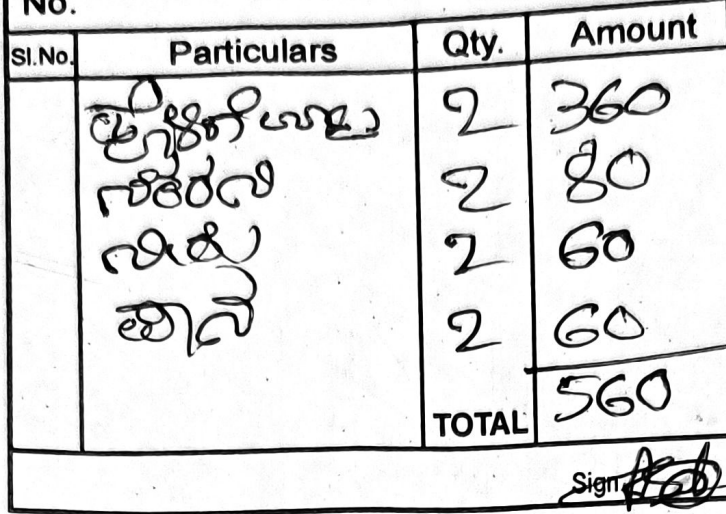 No.
Sl.No. Particulars Qty. Amount
ಹೋಳಿಗೆ ಊಟ 2 360
2 80
ನೀರು 2 60
ಪಾನ 2 60
TOTAL 560
Sign